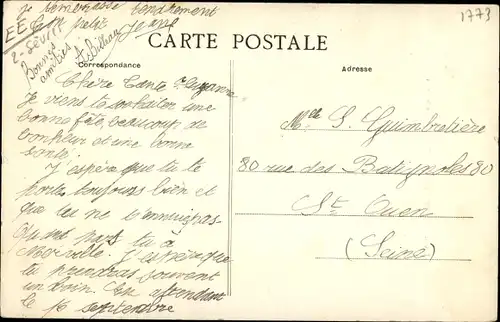 je t'embrasse tendrement
Ton petit
1773
EE
2-Sèvres
Bonnes
amitiés
CARTE POSTALE
Correspondance
Adresse
Chère Tante Suzanne
Je viens te souhaiter une
bonne fête, beaucoup de
bonheur et une bonne
santé.
J'espère que tu te
portes toujours bien et
que tu ne t'ennuies pas
tu
J'espère que
tu prendras souvent
un bain. En attendant
le 16 septembre
Mlle S. Guimbretière
80 rue des Batignoles 80
St Ouen
(Seine)